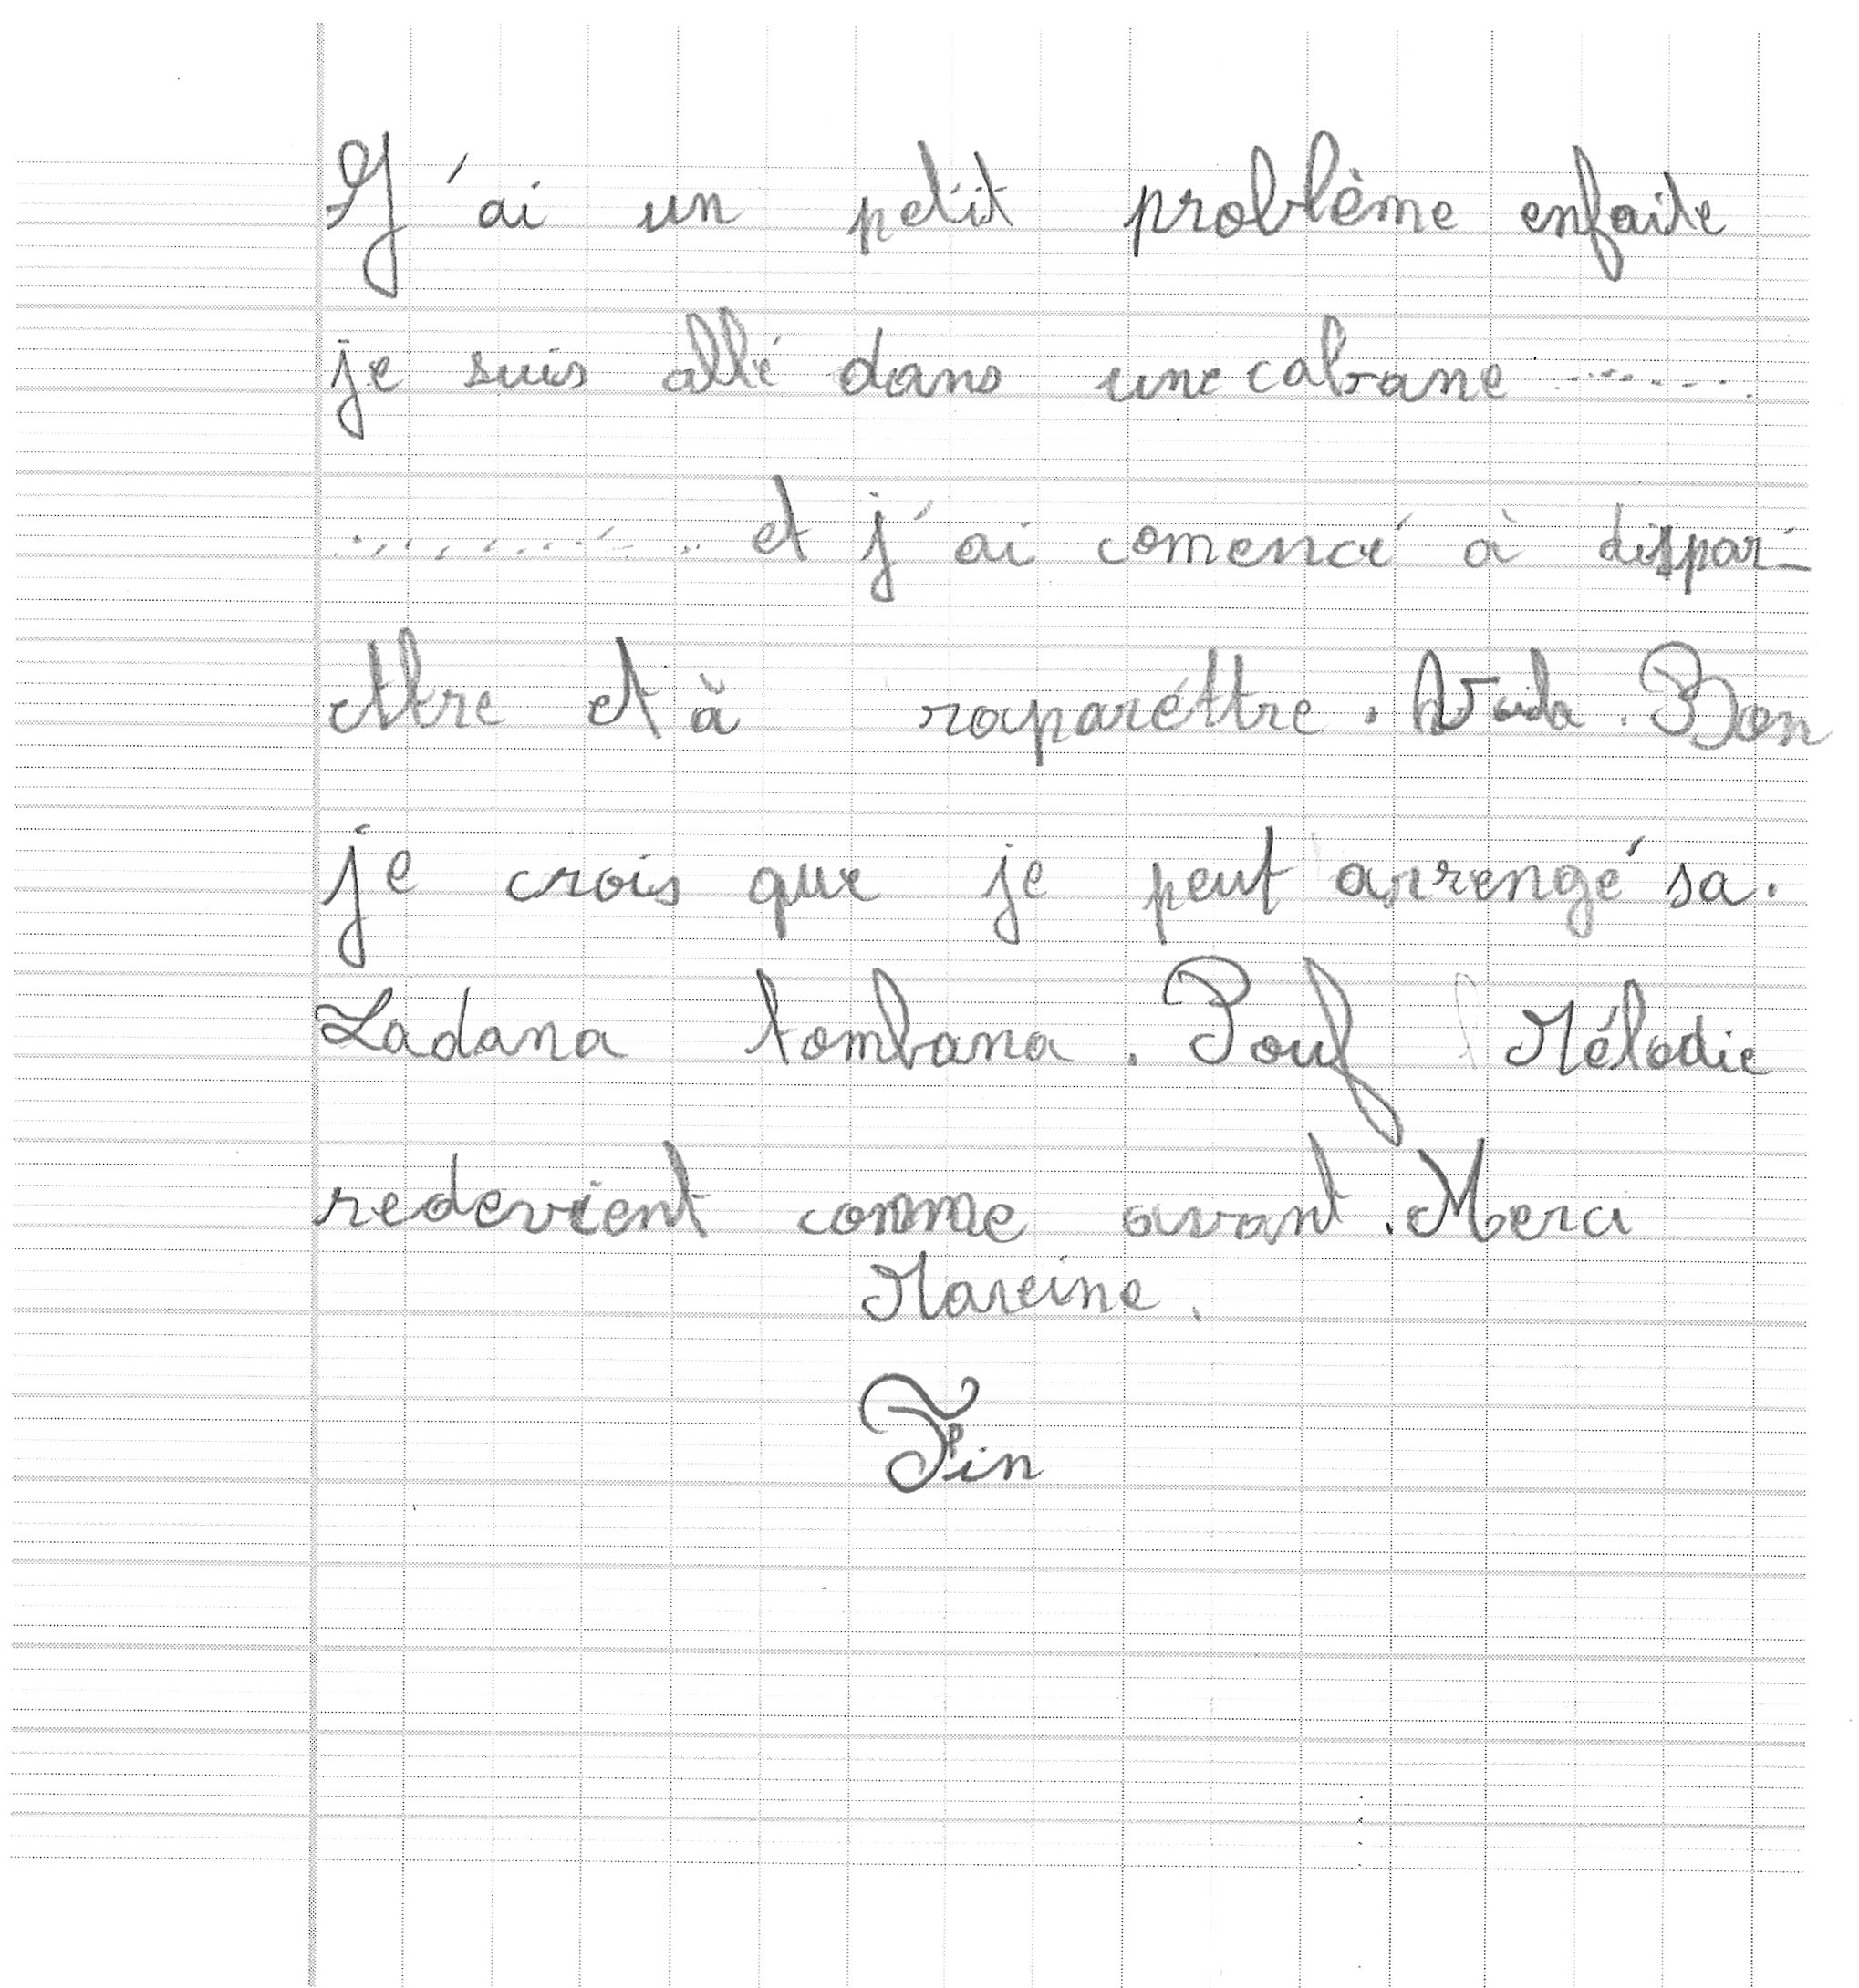 J'ai un petit problème enfaite
je suis allé dans une cabane ............
............ et j'ai comencé à dispar-
ettre et à raparéttre. Bon
je crois que je peut arrengé sa.
Ladana tombana. Pouf Mélodie
redevient comme avant. Merci
Mareine.
Fin